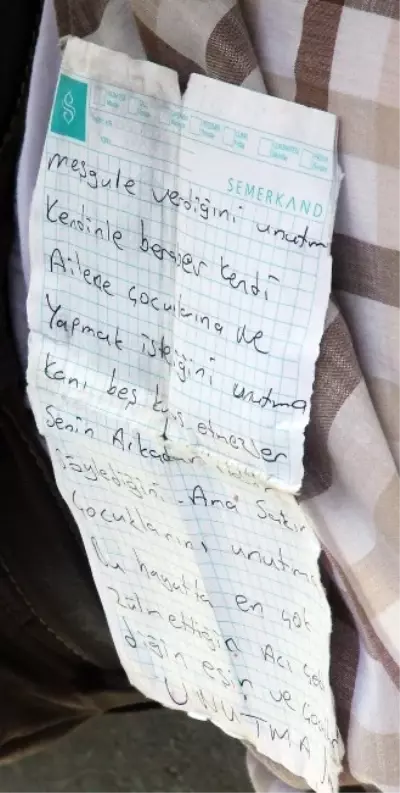 SEMERKAND
meşgule verdiğini unutm
Kendinle beraber kendi
Ailene çocuklarına ve
Yapmak isteğini unutma
Kani beş kuş etmezler
Senin Arkadan
söylediğin Ana
çocuklarını unutma
Bu hayatta en çok
Zülmettiğin Acı çek
diğin eşin ve
UNUTMA!